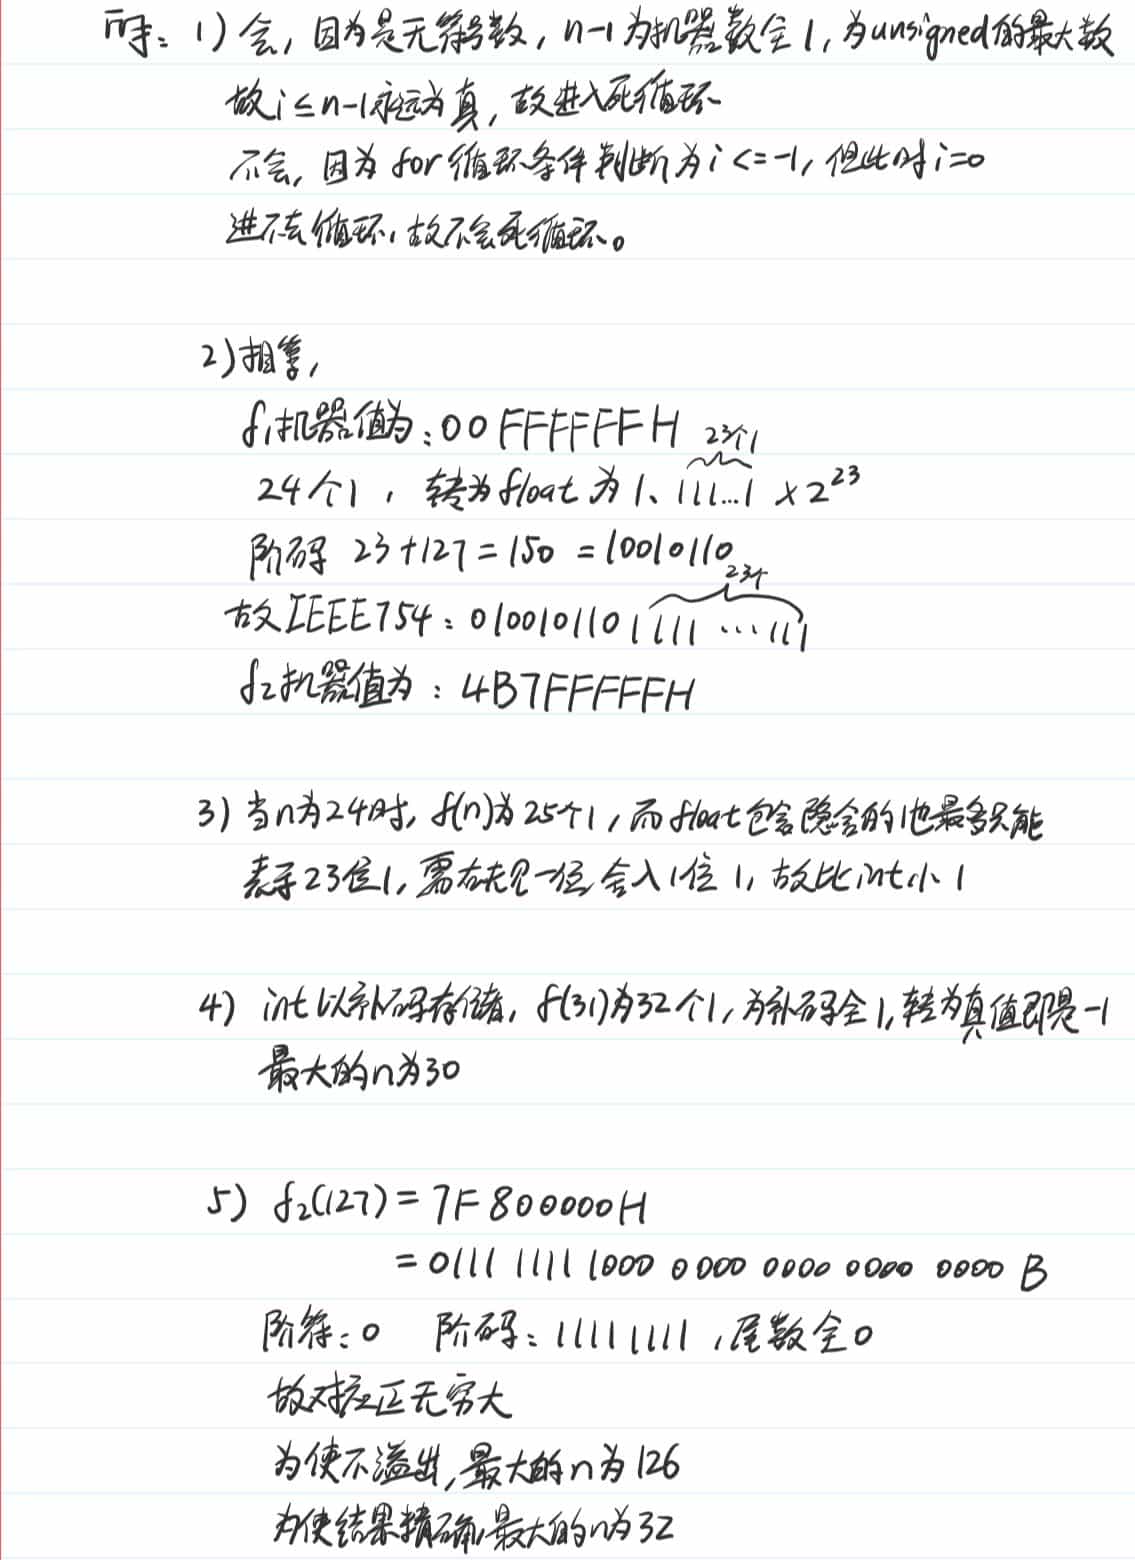 解：1) 会，因为是无符号数，n-1为机器数全1，为unsigned的最大数
故i≤n-1永远为真，故进入死循环
不会，因为for循环条件判断为i<=-1，但此时i=0
进不去循环，故不会死循环。
2)相等，
f1机器值为：00FFFFFFH
24个1，转为float为1、111...1 × 2^23
23个1
阶码 23+127=150 =10010110
故IEEE754：0100101101111...111
23个
f2机器值为：4B7FFFFFH
3) 当n为24时，f(n)为25个1，而float包含隐含的1也最多只能
表示23位1，需右规一位舍入1位1，故比int小1
4) int以补码存储，f(31)为32个1，为补码全1，转为真值即是-1
最大的n为30
5) f2(127)=7F800000H
=0111 1111 1000 0000 0000 0000 0000 B
阶符：0 阶码：11111111，尾数全0
故对应正无穷大
为使不溢出，最大的n为126
为使结果精确，最大的n为32